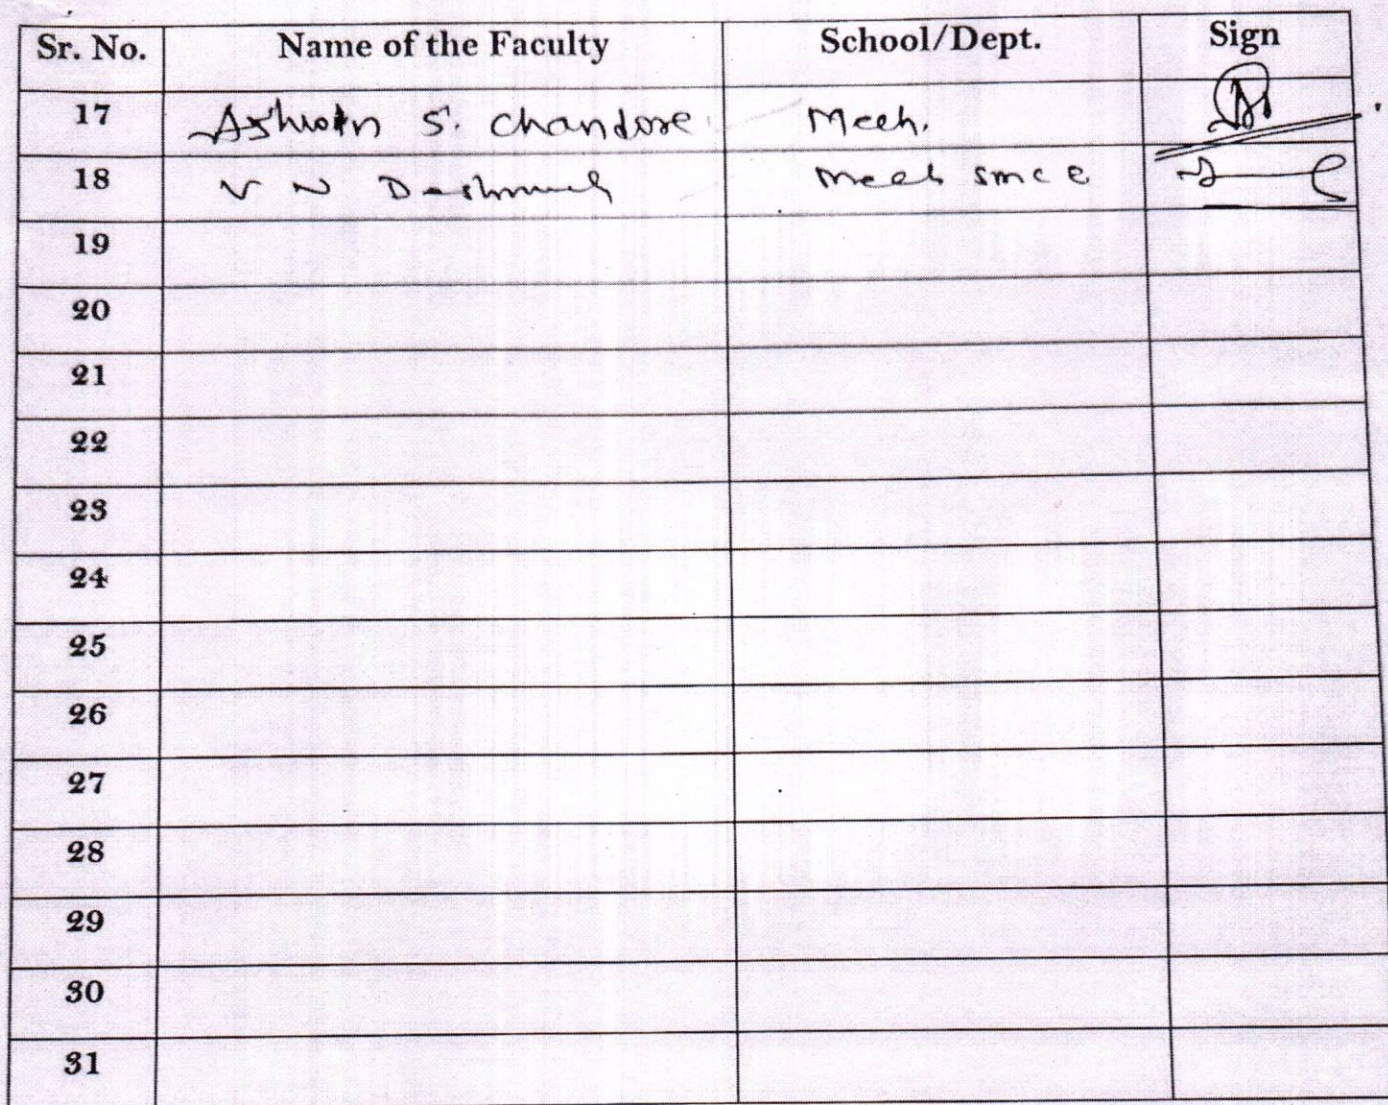 Sr. No. Name of the Faculty School/Dept. Sign
17 Ashwin S. Chandore Mech.
18 V N Deshmukh Mech smce
19
20
21
22
23
24
25
26
27
28
29
30
31